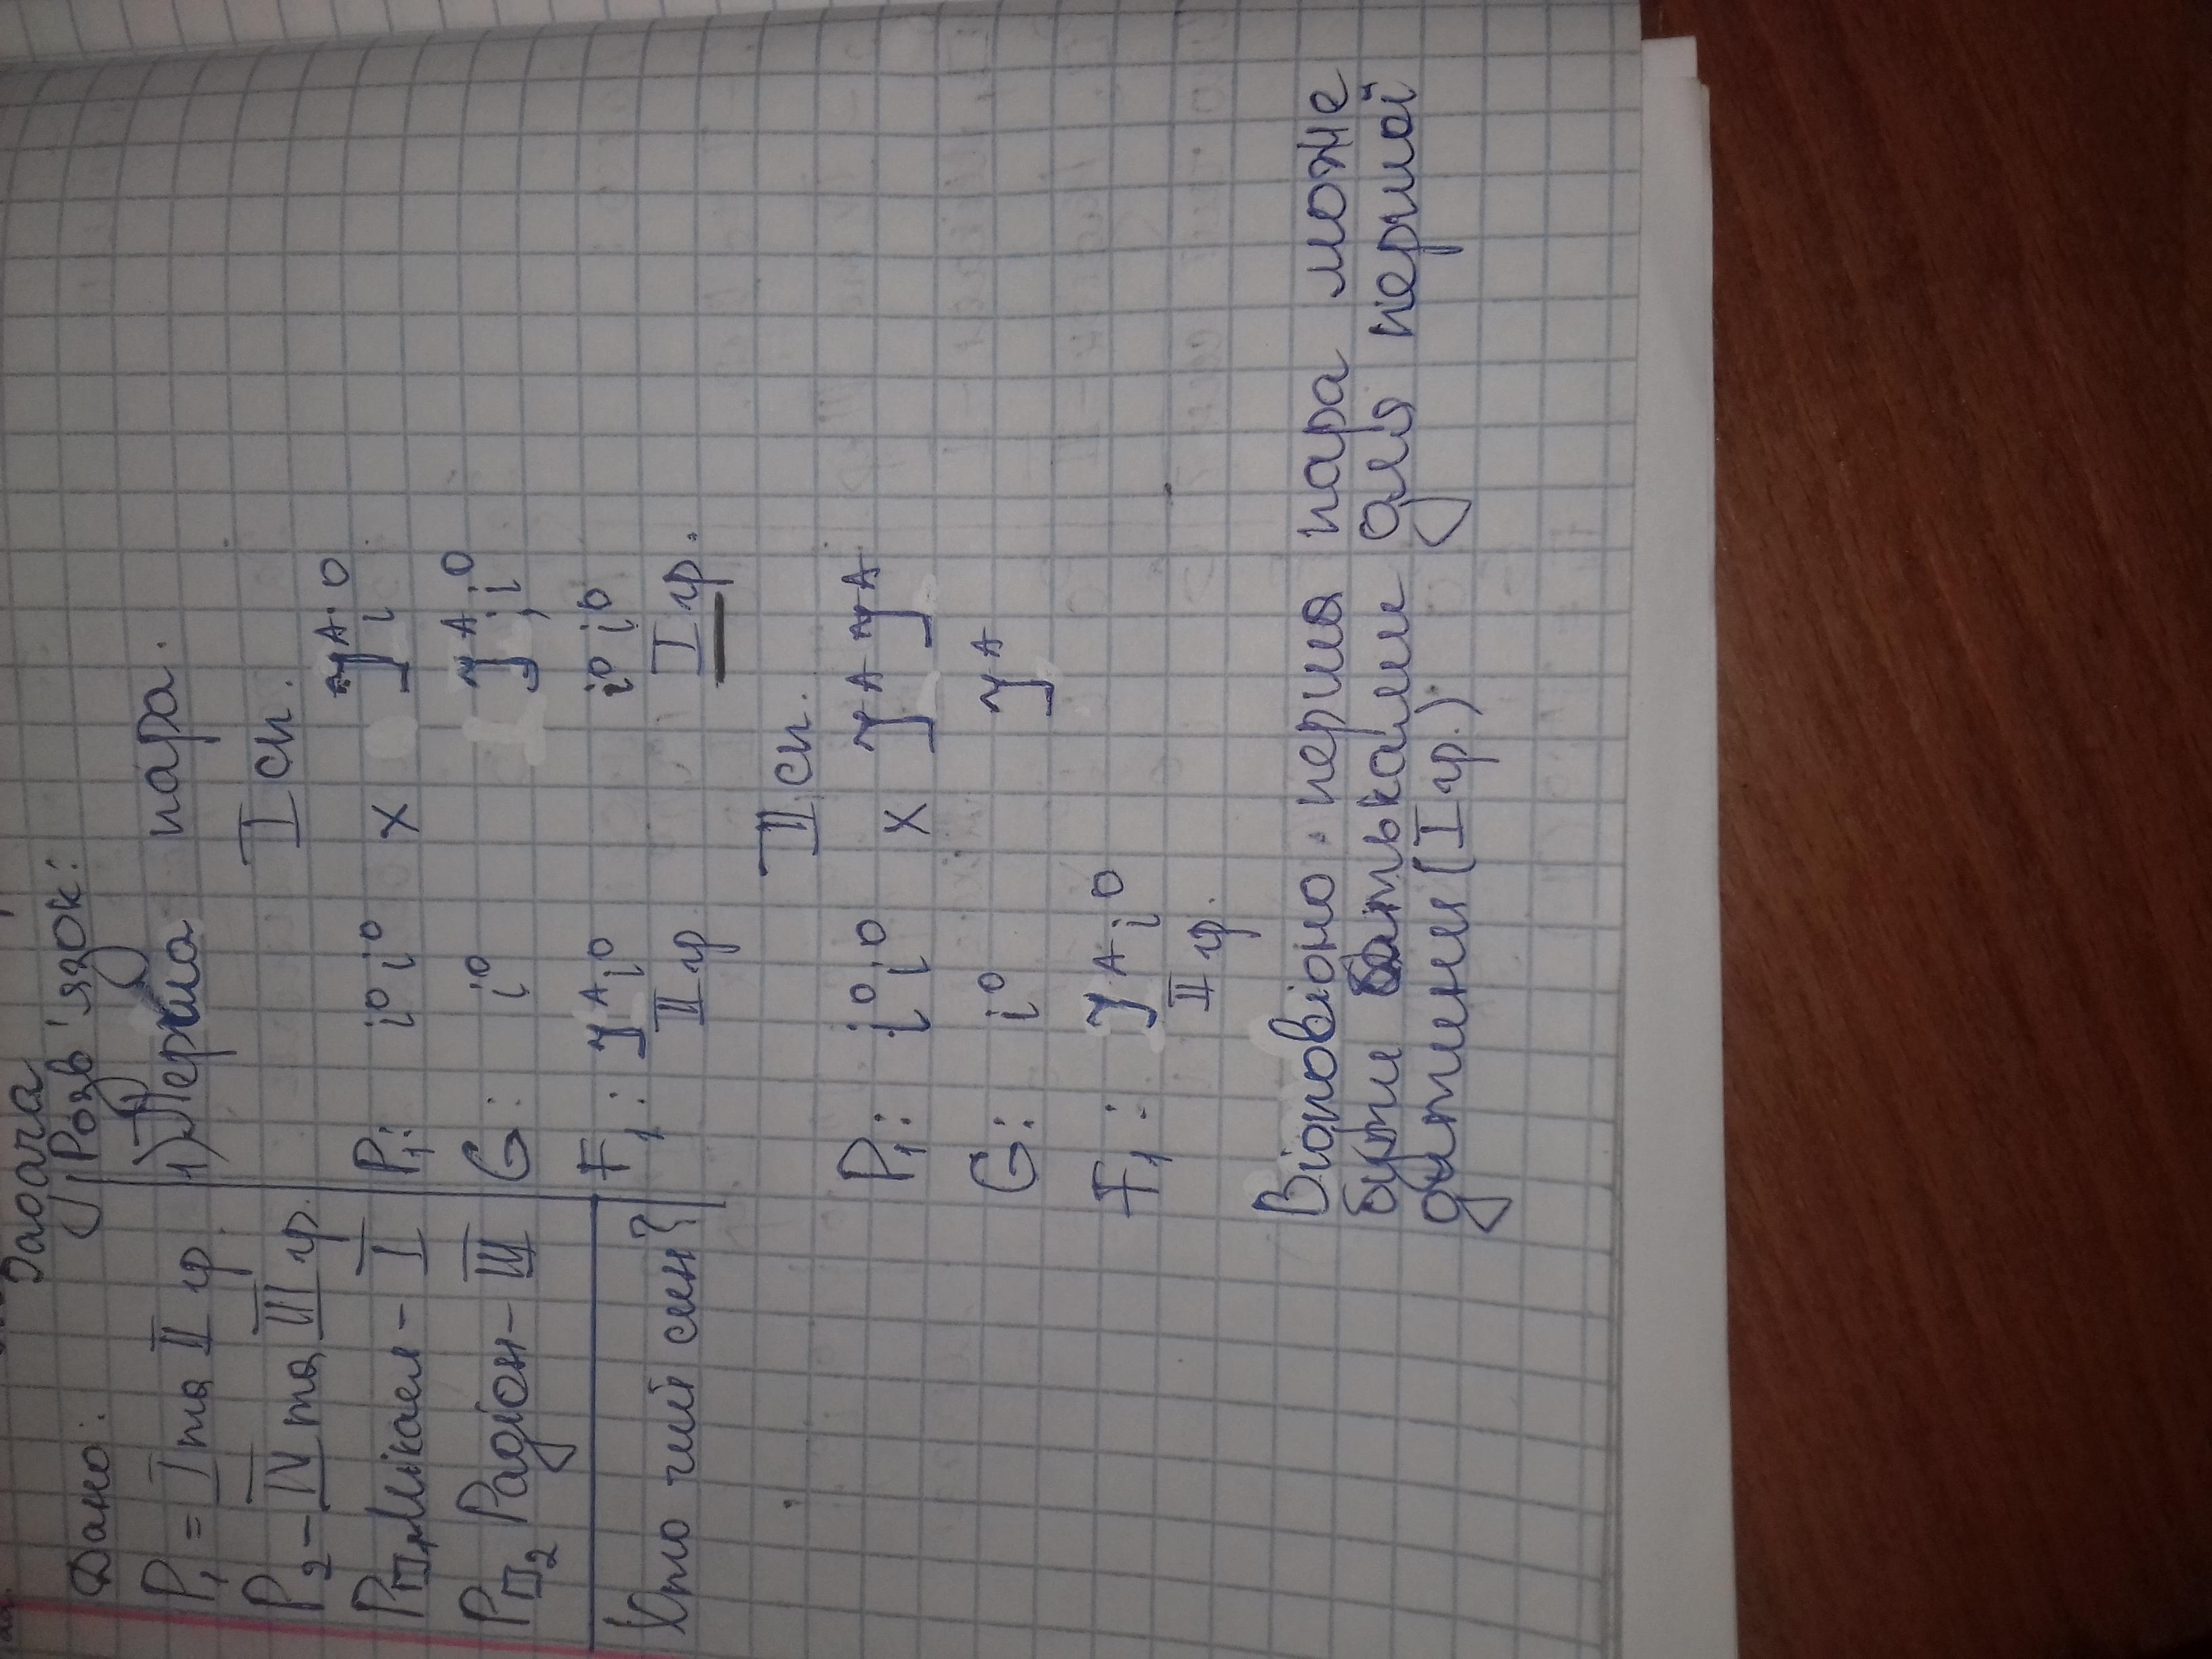 Задача
Дано:
P₁ = I та II гр
P₂ – IV та III гр.
P□₁ Мікаел – I
P□₂ Радіон – III
Хто чий син?
Розв'язок:
1) Перша пара.
I сп.
P₁: i⁰i⁰ x Jᴬi⁰
G: i⁰ Jᴬ; i⁰
F₁: Jᴬi⁰ i⁰i⁰
II гр I гр.
II сп.
P₁: i⁰i⁰ x JᴬJᴬ
G: i⁰ Jᴬ
F₁: Jᴬi⁰
II гр.
Відповідно перша пара може
бути батьками для першої
дитини (I гр.)